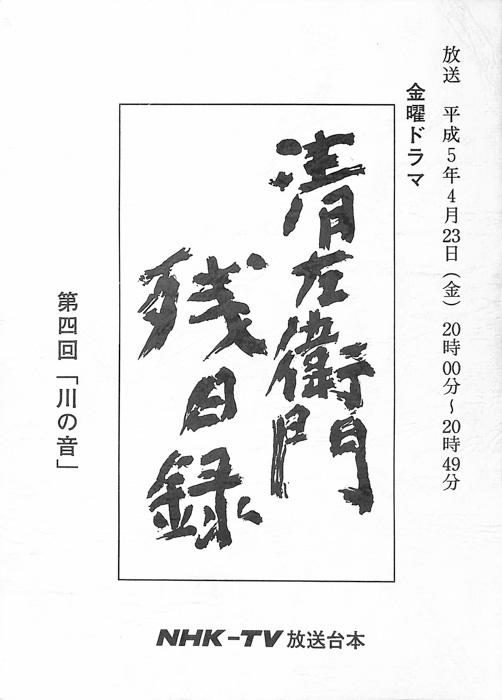 放送 平成5年4月23日(金) 20時00分~20時49分
金曜ドラマ
清左衛門
残日録
第四回「川の音」
NHK-TV 放送台本